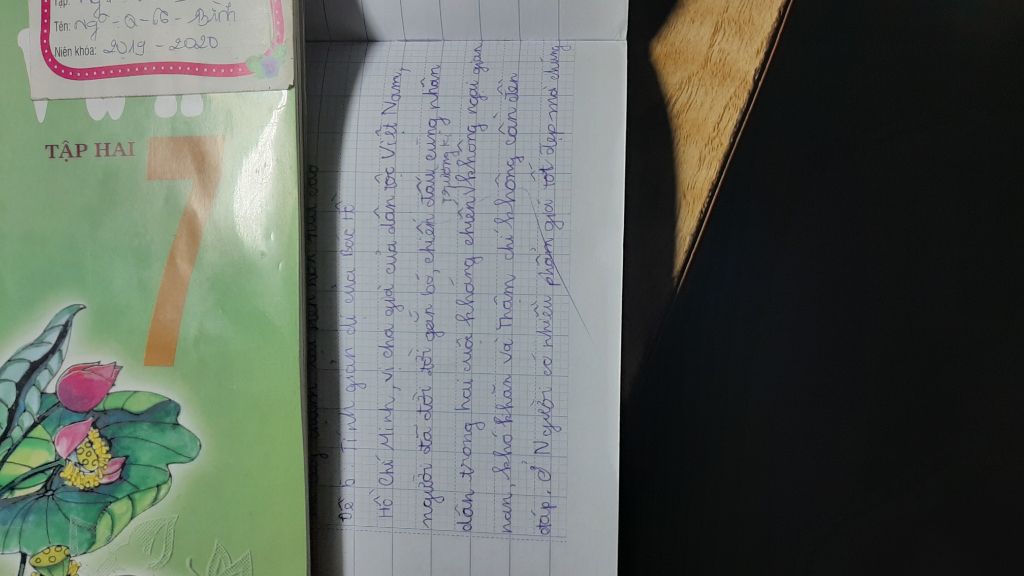 Tên: Ngô - Q - Bình
Niên khóa: 2019 - 2020
TẬP HAI
7
Đề b. Tính giản dị của Bác Hồ
Hồ Chí Minh, vị cha già của dân tộc Việt Nam,
người đã đời đời gắn bó, chiến đấu cùng nhân
trường kì,
dân trong hai cuộc kháng chiến không ngại gian
nan, khó khăn và thậm chí không cần đền
đáp. Ở Người có nhiều phẩm giá rất đẹp mà chúng